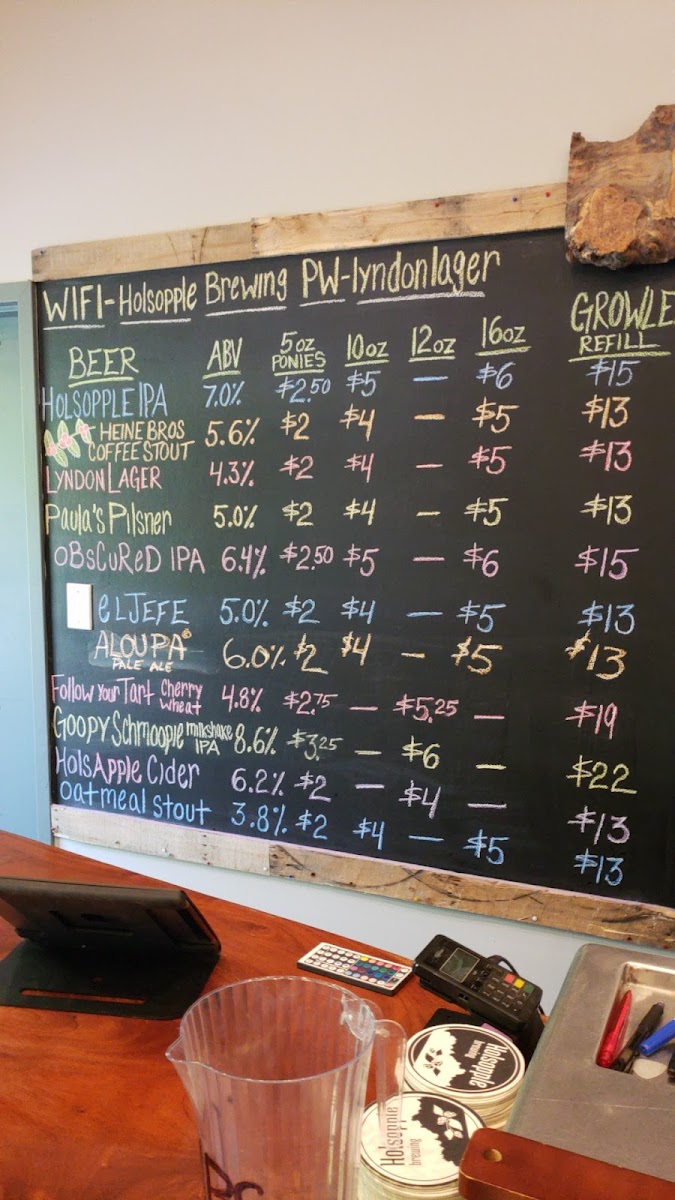 WIFI-Holsopple Brewing PW-lyndonlager
BEER ABV 5oz PONIES 10oz 12oz 16oz GROWLE REFILL
HOLSOPPLE IPA 7.0% $2.50 $5 — $6 $15
HEINE BROS COFFEE STOUT 5.6% $2 $4 — $5 $13
LYNDON LAGER 4.3% $2 $4 — $5 $13
Paula's Pilsner 5.0% $2 $4 — $5 $13
oBsCuReD IPA 6.4% $2.50 $5 — $6 $15
eL JEFE 5.0% $2 $4 — $5 $13
ALOUPA PALE ALE 6.0% $2 $4 — $5 $13
Follow Your Tart Cherry Wheat 4.8% $2.75 — $5.25 — $19
Goopy Schmoopie milkshake IPA 8.6% $3.25 — $6 — $22
HolsApple Cider 6.2% $2 — $4 — $13
oatmeal stout 3.8% $2 $4 — $5 $13
Holsopple
brewing
Holsopple
brewing